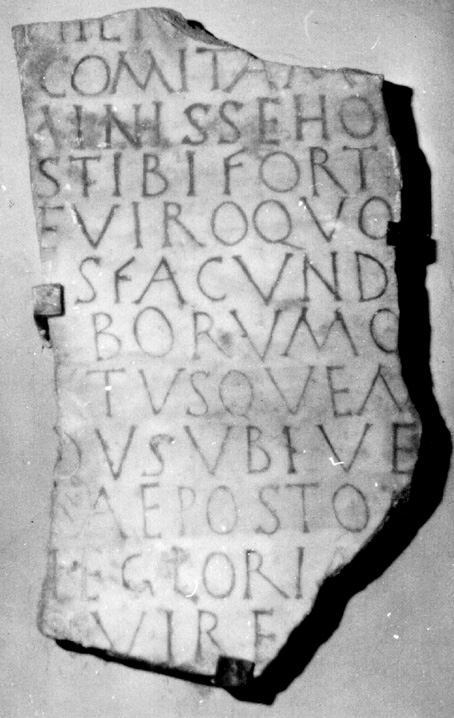 COMITAM
AINISSEHO
STIBIFORT
EVIROQVO
SFACVND
BORVMO
TVSQVEN
DVSVBIVE
AEPOSTO
LEGLORIA
VIRE